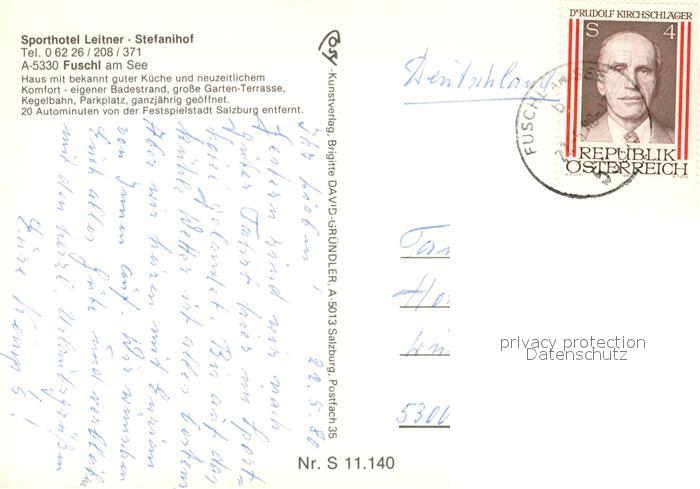 Sporthotel Leitner · Stefanihof
Tel. 0 62 26 / 208 / 371
A-5330 Fuschl am See
Haus mit bekannt guter Küche und neuzeitlichem
Komfort - eigener Badestrand, große Garten-Terrasse,
Kegelbahn, Parkplatz, ganzjährig geöffnet.
20 Autominuten von der Festspielstadt Salzburg entfernt.
Cosy-Kunstverlag, Brigitte DAVID-GRÜNDLER, A-5013 Salzburg, Postfach 35
22.5.80
Ihr Lieben!
Gestern sind wir nach
guter Fahrt hier im Sport-
hotel gelandet. Bis auf das
kühle Wetter ist alles bestens
Aber wir
von innen auf. Wir wünschen
Euch alles Gute und verbleiben
mit den herzl. Urlaubsgrüßen
Eure
Nr. S 11.140
Deutschland
DR RUDOLF KIRCHSCHLÄGER
S 4
REPUBLIK
ÖSTERREICH
FUSCHL AM SEE
5300
privacy protection
Datenschutz